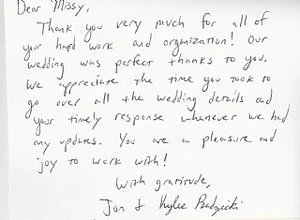 Dear Missy,
Thank you very much for all of
your hard work and organization! Our
wedding was perfect thanks to you.
We appreciate the time you took to
go over all the wedding details and
your timely response whenever we had
any updates. You are a pleasure and
joy to work with!
With gratitude,
Jon & Kylee